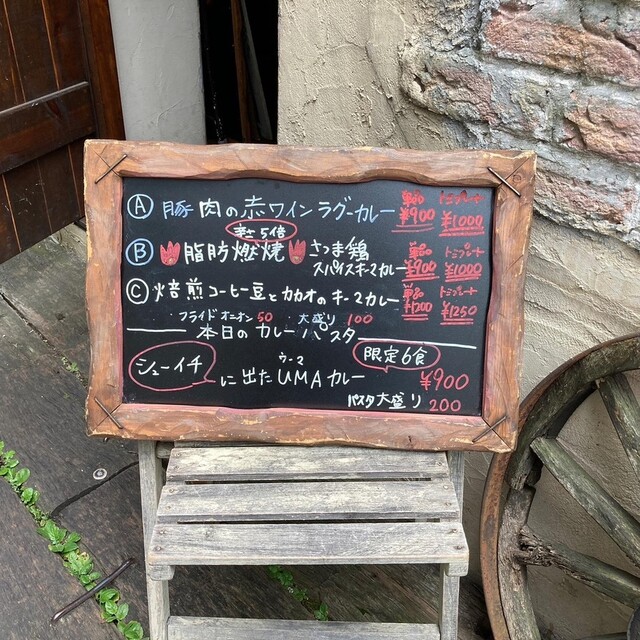 Ⓐ 豚肉の赤ワインラグーカレー 単品 ¥900 トミプレート ¥1000
辛さ5倍
Ⓑ 脂肪燃焼 さつま鶏 スパイスキーマカレー 単品 ¥900 トミプレート ¥1000
Ⓒ 焙煎コーヒー豆とカカオのキーマカレー 単品 ¥1200 トミプレート ¥1250
フライドオニオン 50 大盛り 100
本日のカレーパスタ
シューイチ に出た UMAカレー 限定6食 ¥900
ウーマ
パスタ大盛り 200